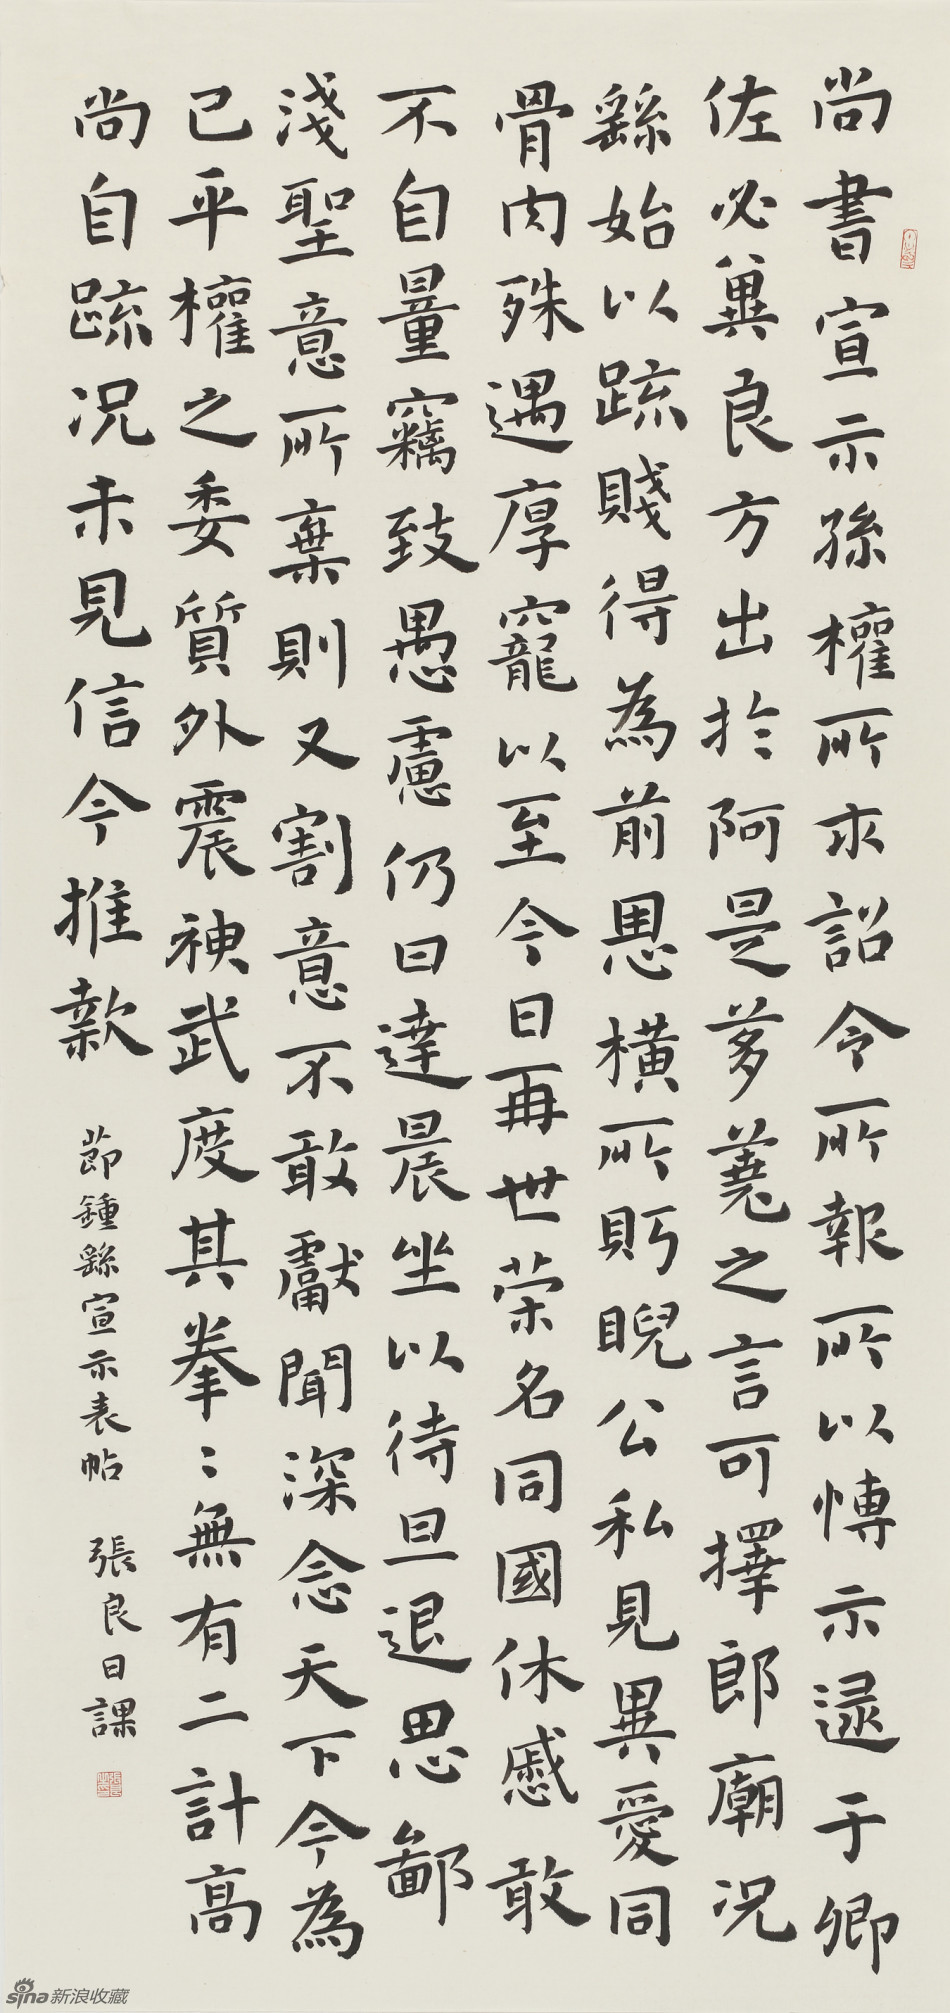 尚書宣示孫權所求詔令所報所以愽示逯于卿
佐必冀良方出於阿是芻蕘之言可擇郎廟況
繇始以疏賤得為前恩橫所眄睨公私見異愛同
骨肉殊遇厚寵以至今日再世荣名同國休慼敢
不自量竊致愚慮仍日達晨坐以待旦退思鄙
淺聖意所棄則又割意不敢獻聞深念天下今為
已平權之委質外震神武度其拳〻無有二計高
尚自疏況未見信今推款
節鍾繇宣示表帖 張良日課
sina新浪收藏